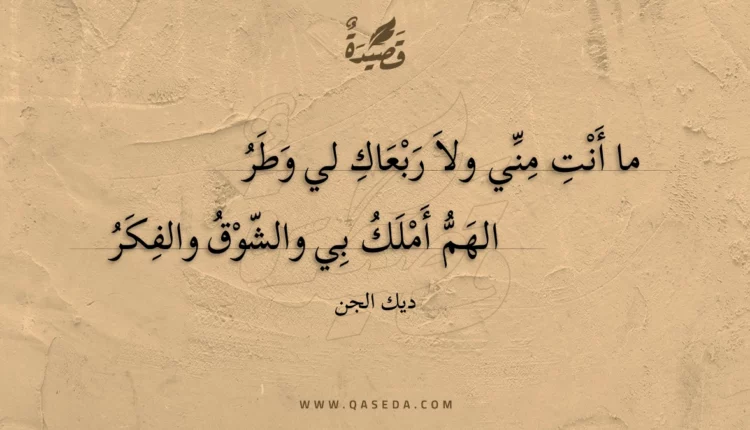 قَصِيْدَةٌ
ما أَنْتِ مِنِّي ولاَ رَبْعَاكِ لي وَطَرُ
الهَمُّ أَمْلَكُ بِي والشّوْقُ والفِكَرُ
ديك الجن
WWW.QASEDA.COM